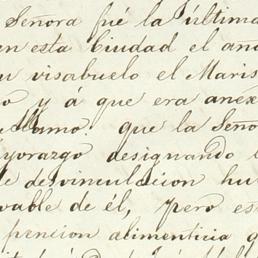 Señora fué la última
en esta Ciudad el añ
visabuelo el Maris
y á que era anex
que la Seño
yorazgo designando
desvinculacion hu
vable de él, pero es
pencion alimenticia q